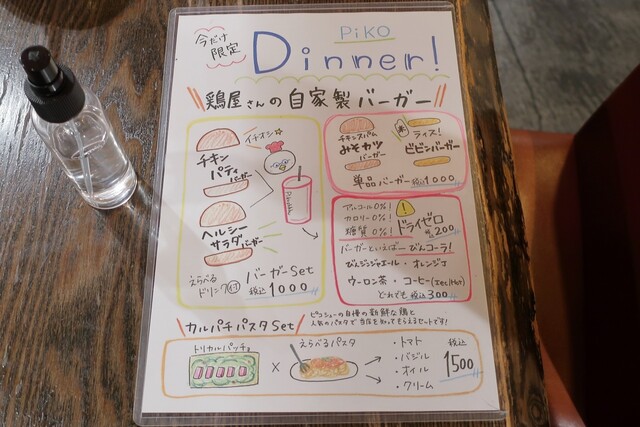 今だけ
限定
PiKO
Dinner!
鶏屋さんの自家製バーガー
イチオシ☆
チキン
パティ
バーガー
ヘルシー
サラダバーガー
えらべる
ドリンク付
バーガーSet
税込 1000
チキンスパム
みそカツ
バーガー
米
ライス!
ビビンバーガー
単品バーガー 税込1000
アルコール0%!
カロリー0%!
糖質 0%!
ドライゼロ
税込200
バーガーといえばーびんコーラ!
びんジンジャエール・オレンジ
ウーロン茶・コーヒー(Ice/Hot)
どれでも 税込300
カルパチパスタSet
ピッシューの自慢の新鮮な鶏と
人気のパスタで当店を知ってもらえるセットです!
トリカルパッチョ
×
えらべるパスタ
・トマト
・バジル
・オイル
・クリーム
税込
1500